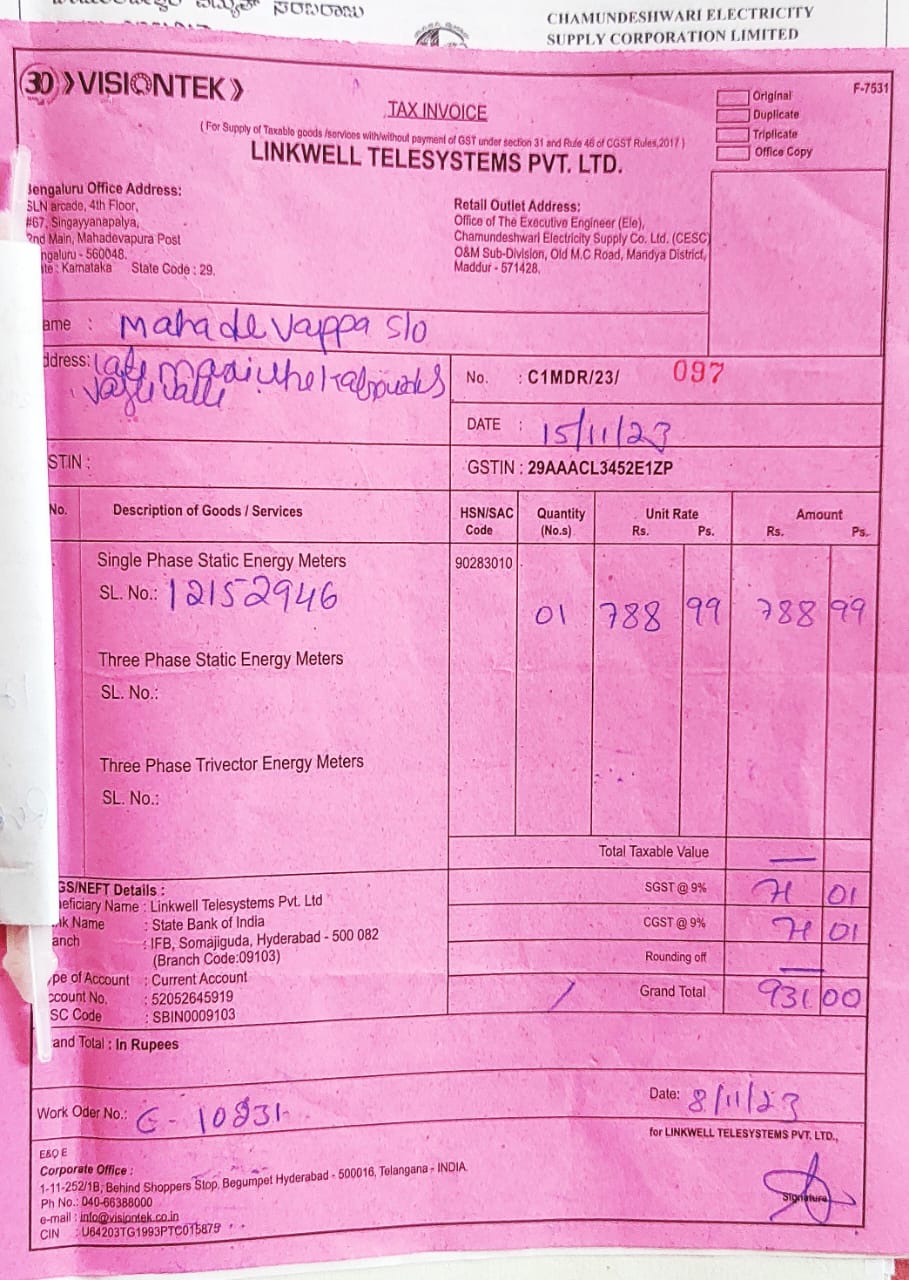 ಸರಬರಾಜು
CHAMUNDESHWARI ELECTRICITY
SUPPLY CORPORATION LIMITED
30 VISIONTEK
F-7531
TAX INVOICE
Original
Duplicate
Triplicate
Office Copy
( For Supply of Taxable goods /services with/without payment of GST under section 31 and Rule 46 of CGST Rules,2017 )
LINKWELL TELESYSTEMS PVT. LTD.
Bengaluru Office Address:
SLN arcade, 4th Floor,
#67, Singayyanapalya,
2nd Main, Mahadevapura Post
ngaluru - 560048.
te : Karnataka State Code : 29.
Retail Outlet Address:
Office of The Executive Engineer (Ele),
Chamundeshwari Electricity Supply Co. Ltd. (CESC)
O&M Sub-Division, Old M.C Road, Mandya District,
Maddur - 571428.
ame : Mahadevappa S/o
ddress: Late
No. : C1MDR/23/ 097
DATE : 15/11/23
STIN :
GSTIN : 29AAACL3452E1ZP
No. Description of Goods / Services HSN/SAC Code Quantity (No.s) Unit Rate Rs. Ps. Amount Rs. Ps.
Single Phase Static Energy Meters 90283010
SL. No.: 12152946 01 788 99 788 99
Three Phase Static Energy Meters
SL. No.:
Three Phase Trivector Energy Meters
SL. No.:
Total Taxable Value —
GS/NEFT Details :
eficiary Name : Linkwell Telesystems Pvt. Ltd
nk Name : State Bank of India
anch : IFB, Somajiguda, Hyderabad - 500 082
(Branch Code:09103)
ype of Account : Current Account
ccount No. : 52052645919
SC Code : SBIN0009103
SGST @ 9% 71 01
CGST @ 9% 71 01
Rounding off —
Grand Total 931 00
and Total : In Rupees
Work Oder No.: G - 10831
Date: 8/11/23
for LINKWELL TELESYSTEMS PVT. LTD.,
E&O E
Corporate Office :
1-11-252/1B, Behind Shoppers Stop, Begumpet Hyderabad - 500016, Telangana - INDIA.
Ph No.: 040-66388000
e-mail : info@visiontek.co.in
CIN : U64203TG1993PTC015875
Signature